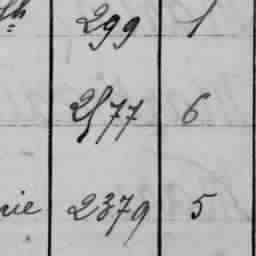 299 1
2577 6
nie 2379 5